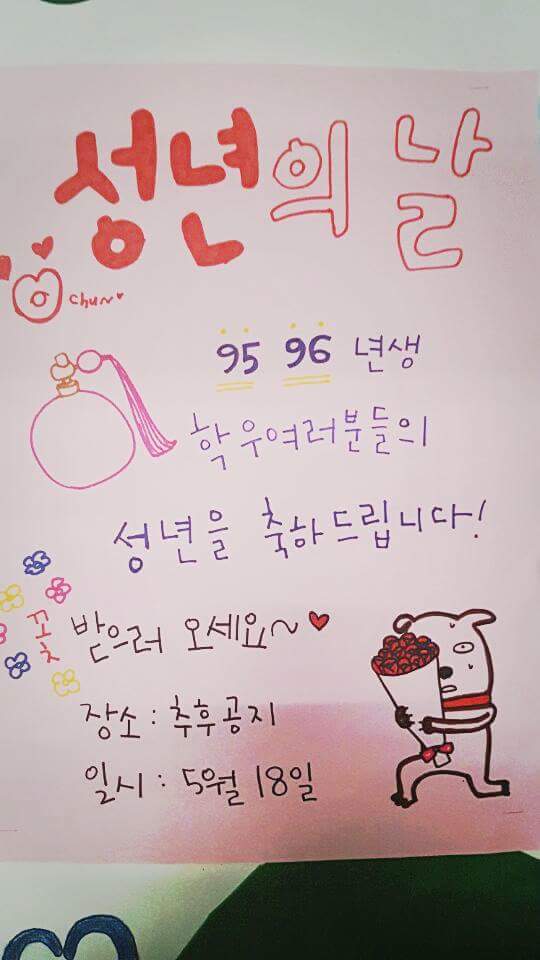 성년의 날
chu~♥
95 96 년생
학우여러분들의
성년을 축하드립니다!
꽃 받으러 오세요~♥
장소 : 추후공지
일시 : 5월 18일